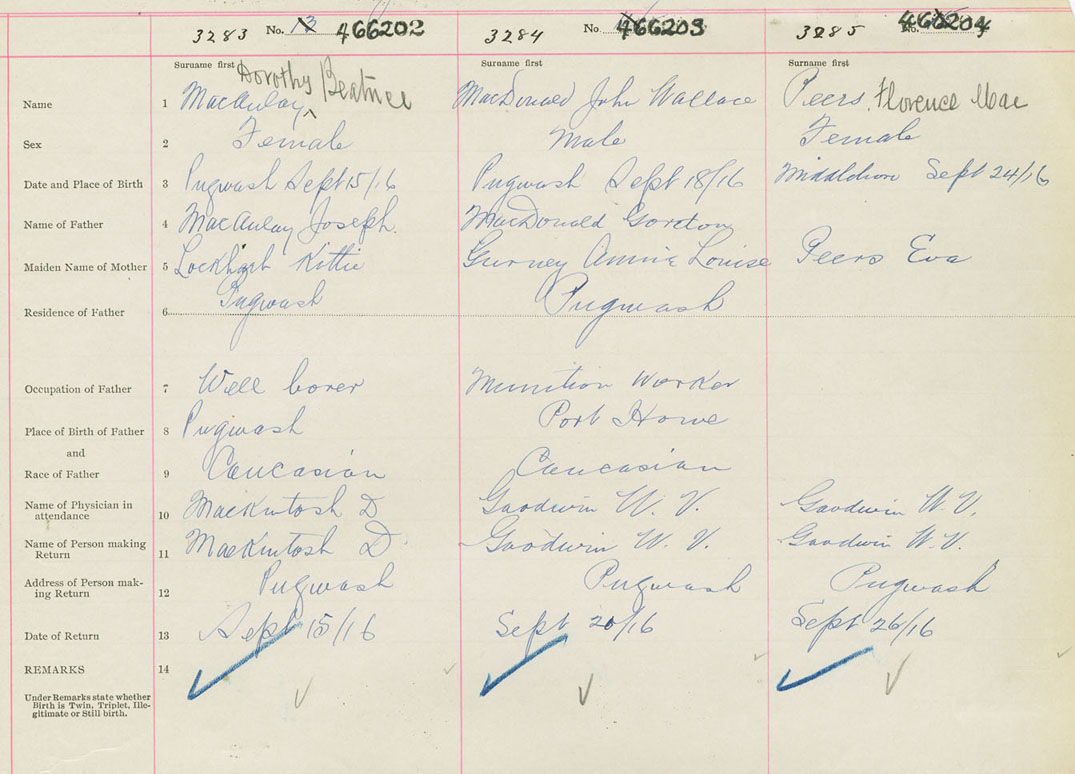 3283 No. 13 466202 3284 No. 466203 3285 No. 466204
Surname first Surname first Surname first
Dorothy Beatrice
Name 1 MacAulay MacDonald John Wallace Peers, Florence Mae
Sex 2 Female Male Female
Date and Place of Birth 3 Pugwash Sept 15/16 Pugwash Sept 18/16 Sept 24/16
Name of Father 4 MacAulay Joseph. MacDonald Gordon
Maiden Name of Mother 5 Lockhart Kittie Gurney Annie Louise Peers Eva
Residence of Father 6 Pugwash Pugwash
Occupation of Father 7 Well borer Munition Worker
Place of Birth of Father 8 Pugwash Port Howe
and
Race of Father 9 Caucasian Caucasian
Name of Physician in
attendance 10 MacKintosh D Goodwin W. V. Goodwin W. V.
Name of Person making
Return 11 MacKintosh D Goodwin W. V. Goodwin W. V.
Address of Person mak-
ing Return 12 Pugwash Pugwash Pugwash
Date of Return 13 Sept 15/16 Sept 20/16 Sept 26/16
REMARKS 14
Under Remarks state whether
Birth is Twin, Triplet, Ille-
gitimate or Still birth.